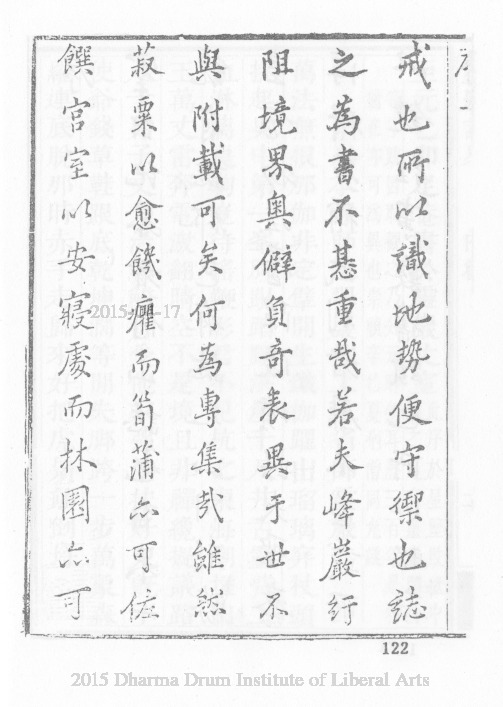 戒也所以識地勢便守禦也誌
之為書不甚重哉若夫峰巖紆
阻境界奧僻負奇表異于世不
與附載可矣何為專集哉雖然
菽粟以愈饑癯而筍蒲亦可佐
饌宮室以安寢處而林園亦可
122
2015-17
2015 Dharma Drum Institute of Liberal Arts